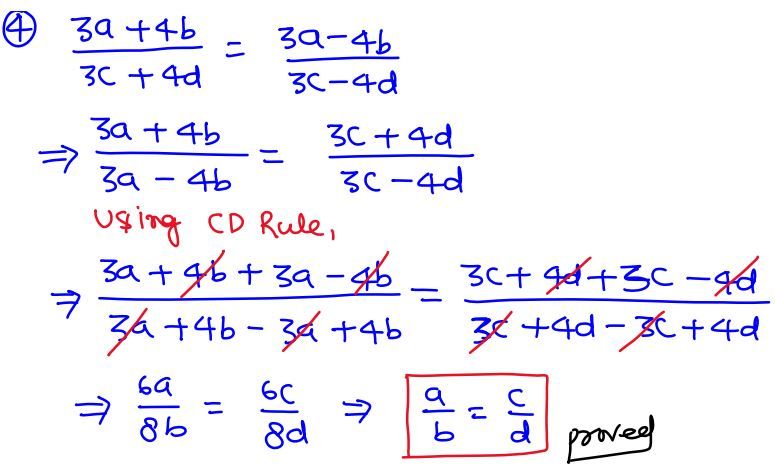 ④ (3a + 4b)/(3c + 4d) = (3a - 4b)/(3c - 4d)
⇒ (3a + 4b)/(3a - 4b) = (3c + 4d)/(3c - 4d)
Using CD Rule,
⇒ (3a + 4b + 3a - 4b)/(3a + 4b - 3a + 4b) = (3c + 4d + 3c - 4d)/(3c + 4d - 3c + 4d)
⇒ 6a/8b = 6c/8d ⇒ a/b = c/d proved